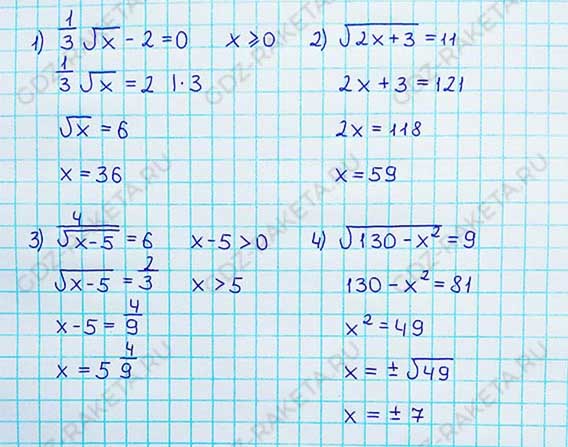 1) 1/3 √x - 2 = 0   x ≥ 0
1/3 √x = 2 | · 3
√x = 6
x = 36
2) √(2x + 3) = 11
2x + 3 = 121
2x = 118
x = 59
3) 4/√(x-5) = 6   x - 5 > 0
√(x-5) = 2/3   x > 5
x - 5 = 4/9
x = 5 4/9
4) √(130 - x²) = 9
130 - x² = 81
x² = 49
x = ± √49
x = ± 7
GDZ-RAKETA.RU